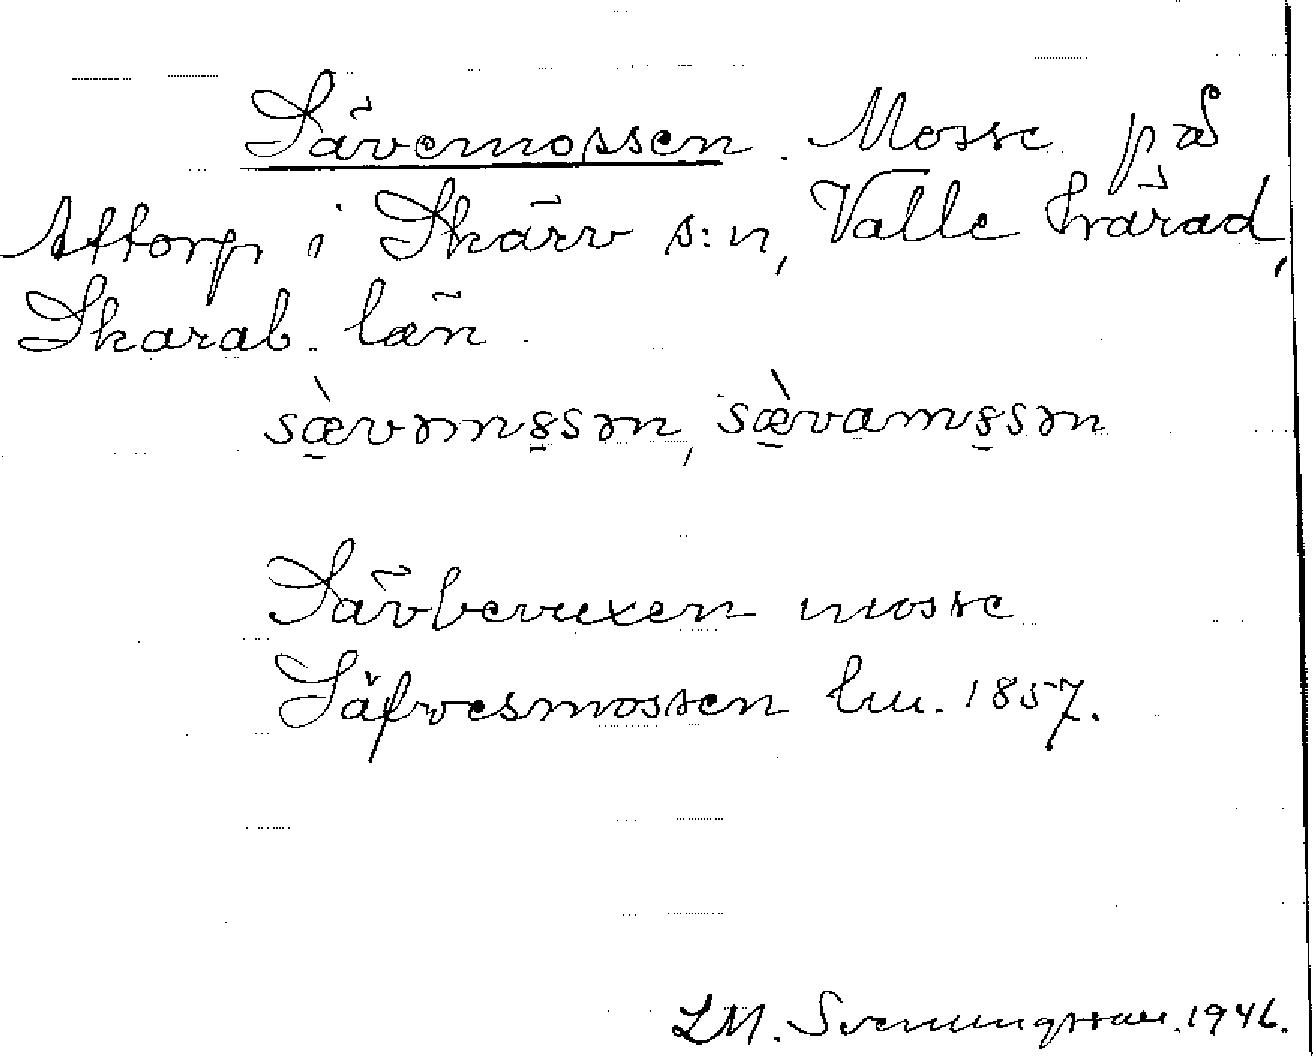 Sävemossen. Mosse på
Attorp i Skärv s:n, Valle härad,
Skarab. län.
sæ̀vəmssən, sæ̀vamssən
Sävbevuxen mosse
Säfvesmossen lm. 1857.
LM. Svenungsson. 1946.